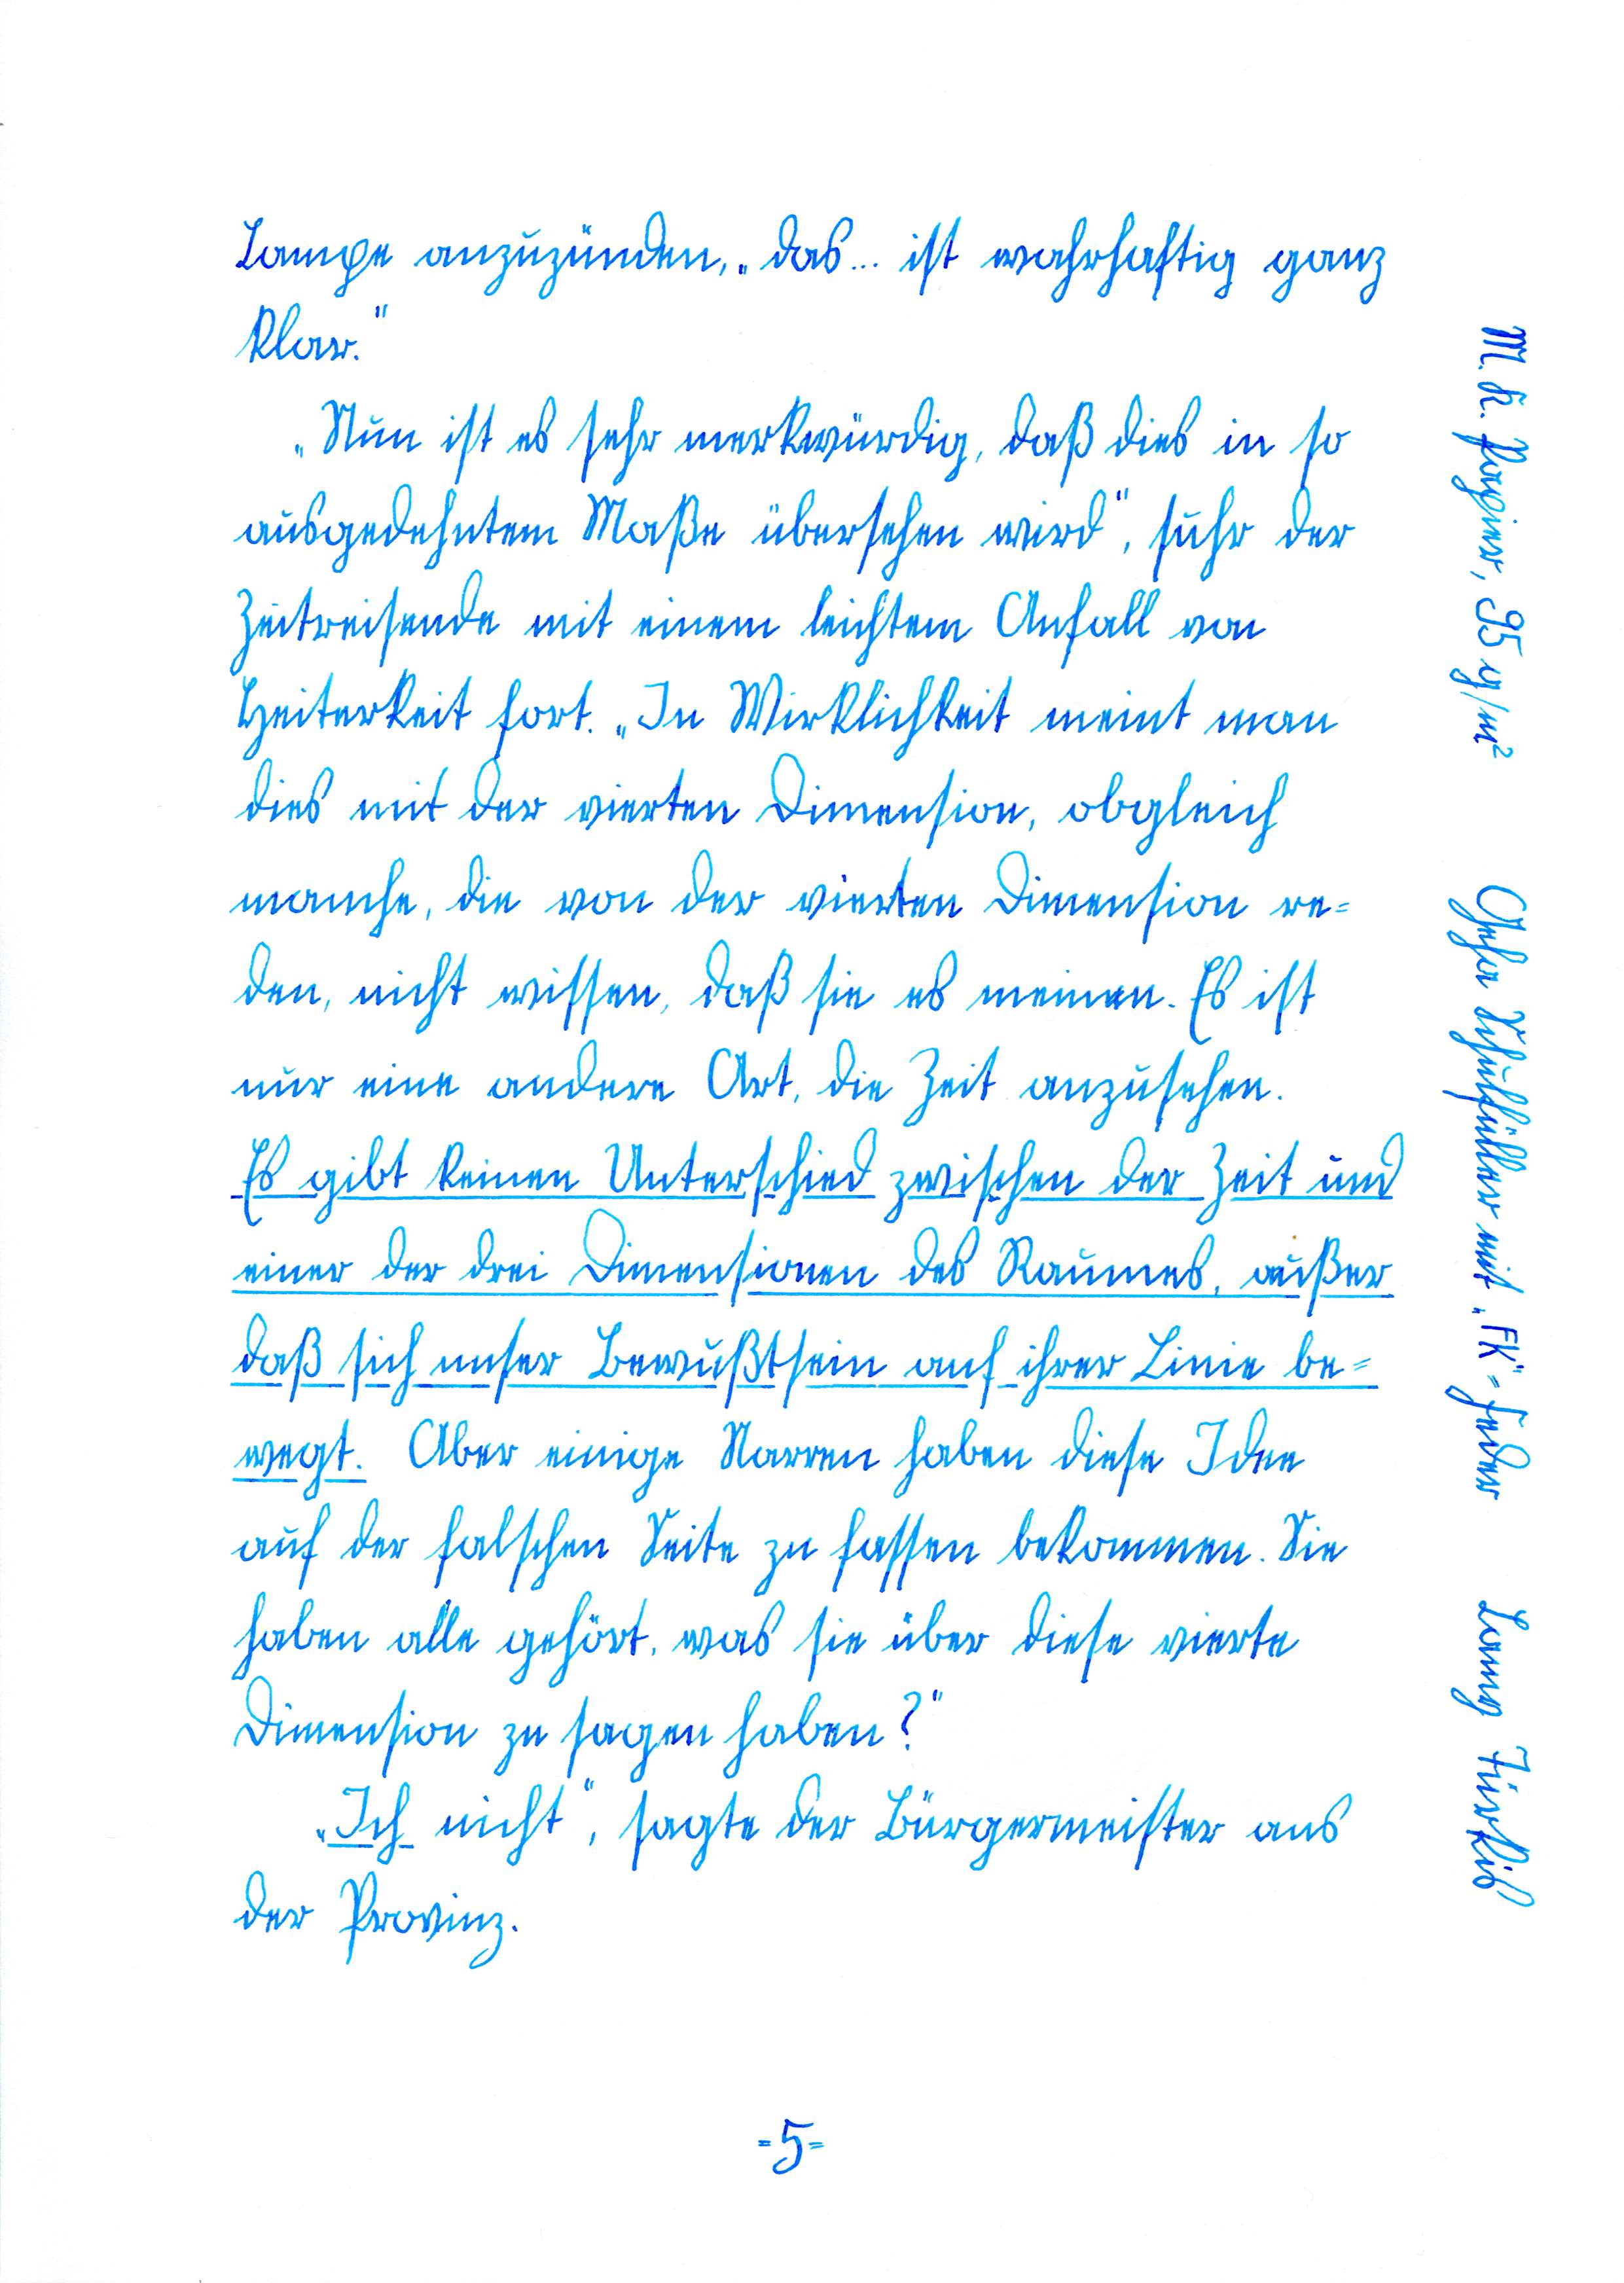 Lampe anzuzünden, „das... ist wahrhaftig ganz
klar.“
„Nun ist es sehr merkwürdig, daß dies in so
ausgedehntem Maße übersehen wird“, fuhr der
Zeitreisende mit einem leichtem Anfall von
Heiterkeit fort. „In Wirklichkeit meint man
dies mit der vierten Dimension, obgleich
manche, die von der vierten Dimension re=
den, nicht wissen, daß sie es meinen. Es ist
nur eine andere Art, die Zeit anzusehen.
Es gibt keinen Unterschied zwischen der Zeit und
einer der drei Dimensionen des Raumes, außer
daß sich unser Bewußtsein auf ihrer Linie be=
wegt. Aber einige Narren haben diese Idee
auf der falschen Seite zu fassen bekommen. Sie
haben alle gehört, was sie über diese vierte
Dimension zu sagen haben?“
„Ich nicht“, sagte der Bürgermeister aus
der Provinz.
=5=
M. K. Papier, 95 g/m²
Geha Schulfüller mit „FK“=Feder
Lamy Türkis